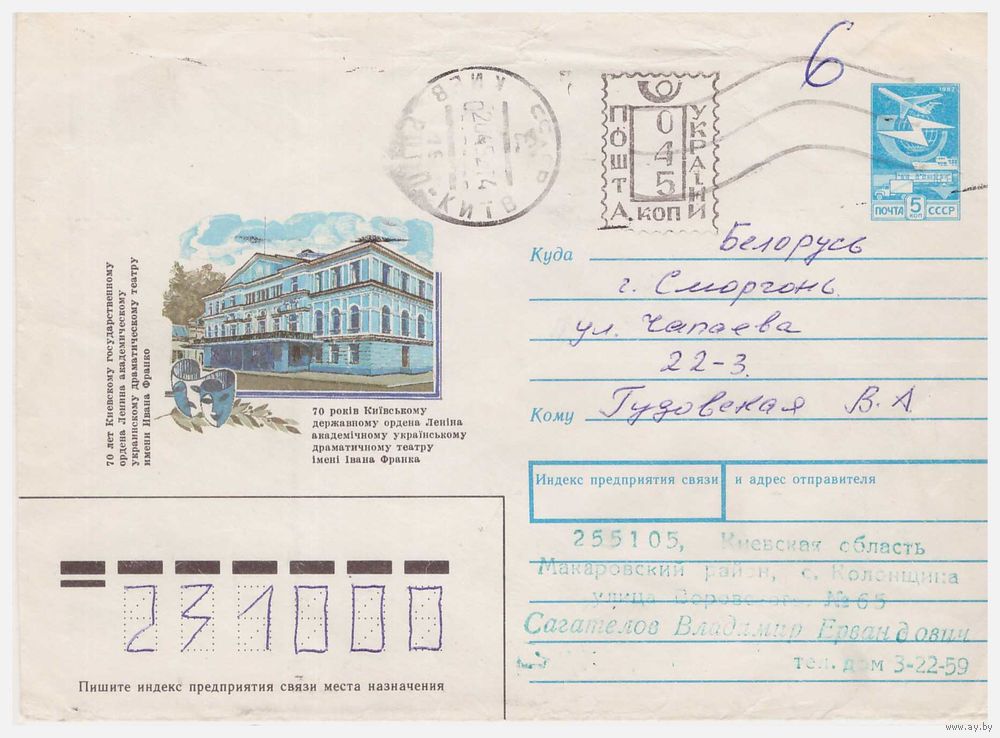 6
СССР
КИЕВ
КИТВ
ПОШТА
УКРАЇНИ
045
КОП
1982
ПОЧТА 5 КОП СССР
70 лет Киевскому государственному
ордена Ленина академическому
украинскому драматическому театру
имени Ивана Франко
70 років Київському
державному ордена Леніна
академічному українському
драматичному театру
імені Івана Франка
Куда Белорусь
г. Сморгонь
ул. Чапаева
22-3.
Кому Гудовская В.А
Индекс предприятия связи и адрес отправителя
255105, Киевская область
Макаровский район, с. Колонщина
улица №65
Сагателов Владимир Ервандович
тел. дом 3-22-59
231000
Пишите индекс предприятия связи места назначения
www.ay.by